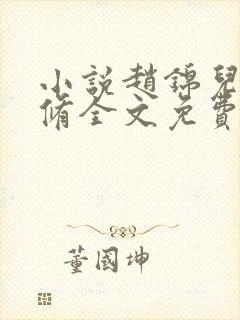 小說趙錦兒
脩全文免費
董國坤